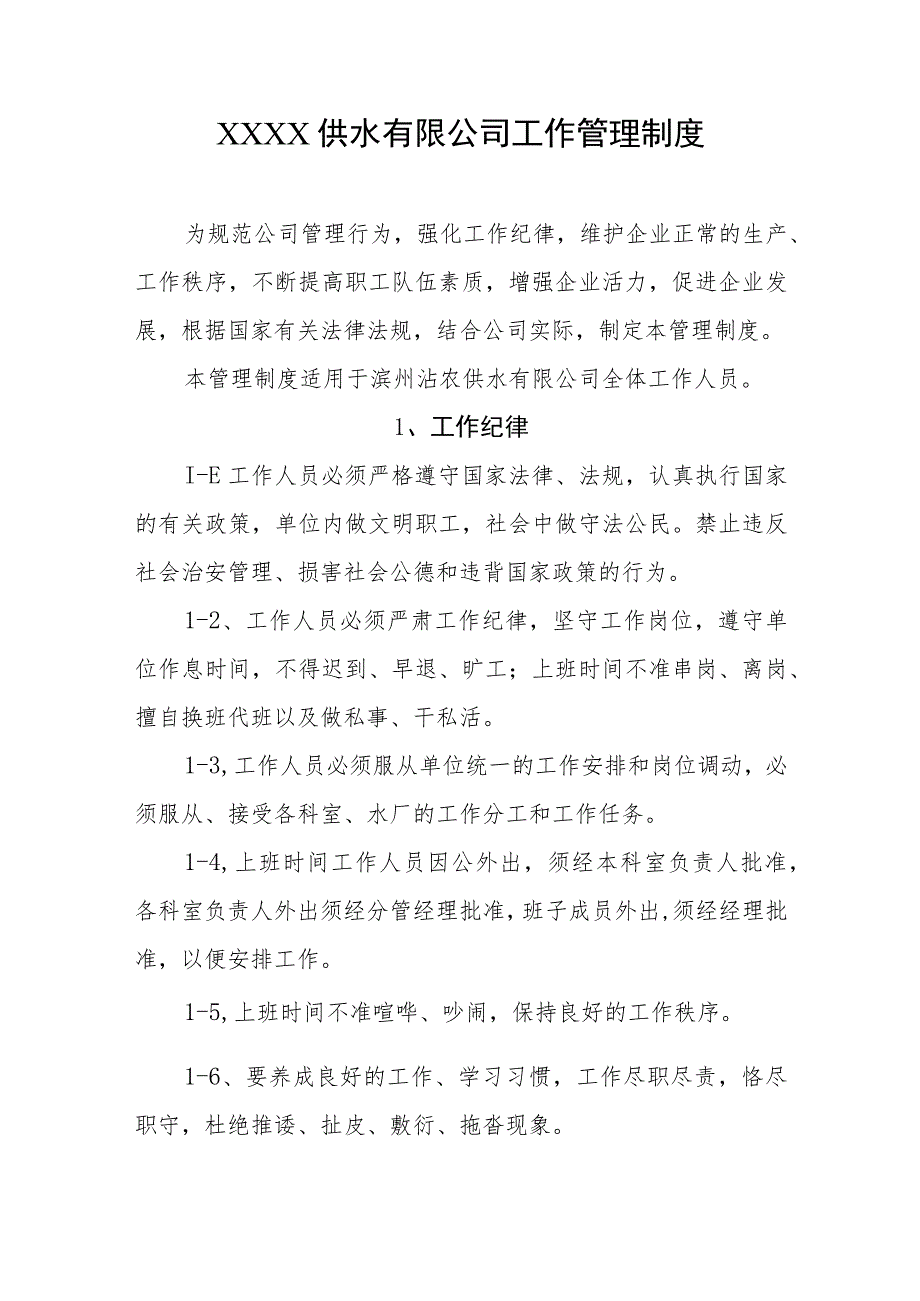 XXXX 供水有限公司工作管理制度
为规范公司管理行为，强化工作纪律，维护企业正常的生产、
工作秩序，不断提高职工队伍素质，增强企业活力，促进企业发
展，根据国家有关法律法规，结合公司实际，制定本管理制度。
本管理制度适用于滨州沾农供水有限公司全体工作人员。
1、工作纪律
I-E 工作人员必须严格遵守国家法律、法规，认真执行国家
的有关政策，单位内做文明职工，社会中做守法公民。禁止违反
社会治安管理、损害社会公德和违背国家政策的行为。
1-2、工作人员必须严肃工作纪律，坚守工作岗位，遵守单
位作息时间，不得迟到、早退、旷工；上班时间不准串岗、离岗、
擅自换班代班以及做私事、干私活。
1-3,工作人员必须服从单位统一的工作安排和岗位调动，必
须服从、接受各科室、水厂的工作分工和工作任务。
1-4,上班时间工作人员因公外出，须经本科室负责人批准，
各科室负责人外出须经分管经理批准,班子成员外出,须经经理批
准，以便安排工作。
1-5,上班时间不准喧哗、吵闹，保持良好的工作秩序。
1-6、要养成良好的工作、学习习惯，工作尽职尽责，恪尽
职守，杜绝推诿、扯皮、敷衍、拖沓现象。